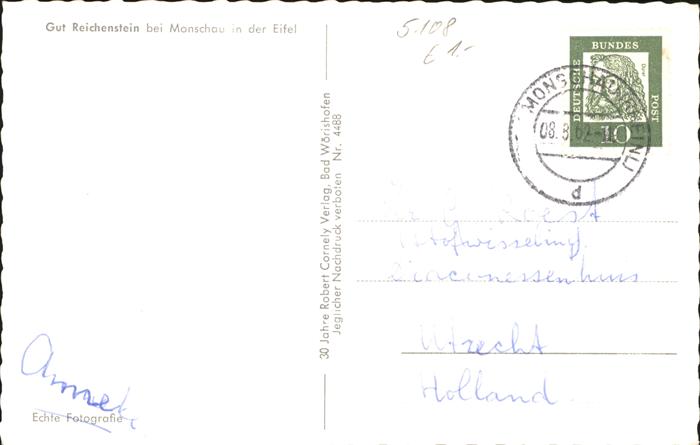 Gut Reichenstein bei Monschau in der Eifel
5.108
£ 1.-
DEUTSCHE BUNDES POST
Dürer
10
MONSCHAU
08. 8. 62
d
30 Jahre Robert Cornely Verlag, Bad Wörishofen
Jeglicher Nachdruck verboten Nr. 4488
Roest
Stofwisseling
Diaconessenhuis
Utrecht
Holland
Echte Fotografie